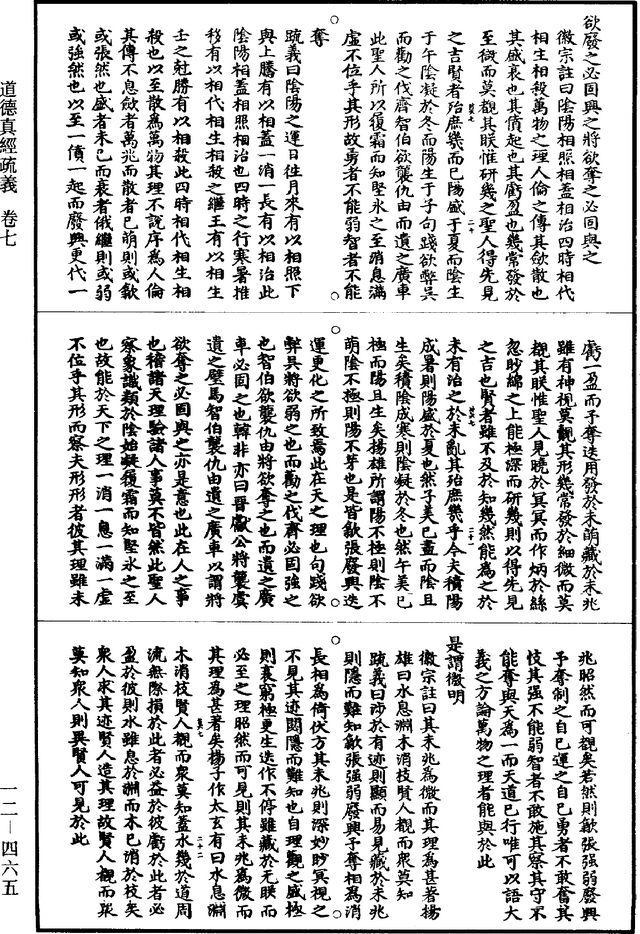 欲廢之必固興之將欲奪之必固與之
徽宗註曰陰陽相照相蓋相治四時相代
相生相殺萬物之理人倫之傳其斂散也
其盛衰也其僨起也其虧盈也幾常發於
至微而莫觀其朕惟研幾之聖人得先見
之吉賢者殆庶幾而已陽盛于夏而陰生
于午陰凝於冬而陽生于子句踐欲弊吳
而勸之伐齊智伯欲襲仇由而遺之廣車
此聖人所以履霜而知堅冰之至消息滿
虛不位乎其形故勇者不能弱智者不能
奪
疏義曰陰陽之運日往月來有以相照下
與上騰有以相蓋一消一長有以相治此
陰陽相蓋相照相治也四時之行寒暑推
移有以相代相生相殺之繼王有以相生
士之尅勝有以相殺此四時相代相生相
殺也以至散為萬物其理不說序為人倫
其傳不息斂者萬兆而散者已萌則或歙
或張然也盛者未已而衰者俄繼則或弱
或強然也以至一僨一起而廢興更代一
虧一盈而予奪迭用發於未萌藏於未兆
雖有神視莫觀其形幾常發於細微而莫
觀其朕惟聖人見曉於冥冥而作炳於絲
忽眇綿之上能極深而研幾則以得先見
之吉也賢者雖不及於知幾然能為之於
未有治之於未亂其殆庶幾乎今夫積陽
成暑則陽盛於夏也然子美已盡而陰且
生矣積陰成寒則陰凝於冬也然午美已
極而陽且生矣揚雄所謂陽不極則陰不
萌陰不極則陽不芽也是皆歙張廢興迭
運更化之所致焉此在天之理也句踐欲
弊吳將欲弱之也而勸之伐齊必固強之
也智伯欲襲仇由將欲奪之也而遺之廣
車必固與之也韓非亦曰晉獻公將襲虞
遺之璧馬智伯襲仇由遺之廣車以謂將
欲奪之必固與之亦是意也此在人之事
也稽諸天理驗諸人事莫不皆然此聖人
察象識類於陰始凝履霜而知堅冰之至
也故能於天下之理一消一息一滿一虛
不位乎其形而察夫形形者彼其理雖未
兆昭然而可觀矣若然則歙張強弱廢興
予奪制之自己運之自己勇者不敢奮其
忮其強不能弱智者不敢施其察其守不
能奪與天為一而天道已行唯可以語大
義之方論萬物之理者能與於此
是謂微明
徽宗註曰其未兆為微而其理為甚著揚
雄曰水息淵木消枝賢人觀而衆莫知
疏義曰涉於有迹則顯而易見藏於未兆
則隱而難知歙張強弱廢興予奪相為消
長相為倚伏方其未兆則深妙眇冥視之
不見其迹閟隱而難知也自理觀之盛極
則衰窮極更生迭作不停雖藏於无朕而
必至之理昭然而可見則其未兆為微而
其理為甚著矣揚子作太玄有曰水息淵
木消枝賢人觀而衆莫知蓋水幾於道周
流無際損於此者必益於彼虧於此者必
盈於彼則水雖息於淵而木已消於枝矣
衆人求其迹賢人造其理故賢人觀而衆
莫知衆人則異賢人可見於此
道德真經疏義 卷七
一二—四六五